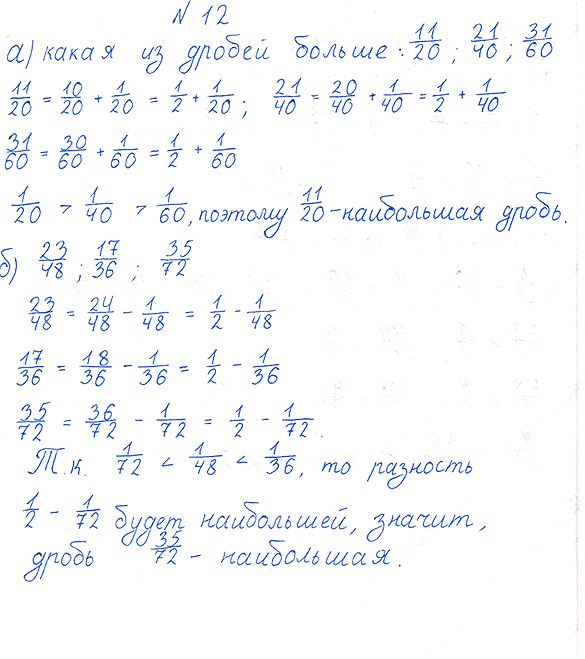 № 12
а) какая из дробей больше: 11/20; 21/40; 31/60
11/20 = 10/20 + 1/20 = 1/2 + 1/20; 21/40 = 20/40 + 1/40 = 1/2 + 1/40
31/60 = 30/60 + 1/60 = 1/2 + 1/60
1/20 > 1/40 > 1/60, поэтому 11/20 - наибольшая дробь.
б) 23/48; 17/36; 35/72
23/48 = 24/48 - 1/48 = 1/2 - 1/48
17/36 = 18/36 - 1/36 = 1/2 - 1/36
35/72 = 36/72 - 1/72 = 1/2 - 1/72.
Т.к. 1/72 < 1/48 < 1/36, то разность
1/2 - 1/72 будет наибольшей, значит,
дробь 35/72 - наибольшая.